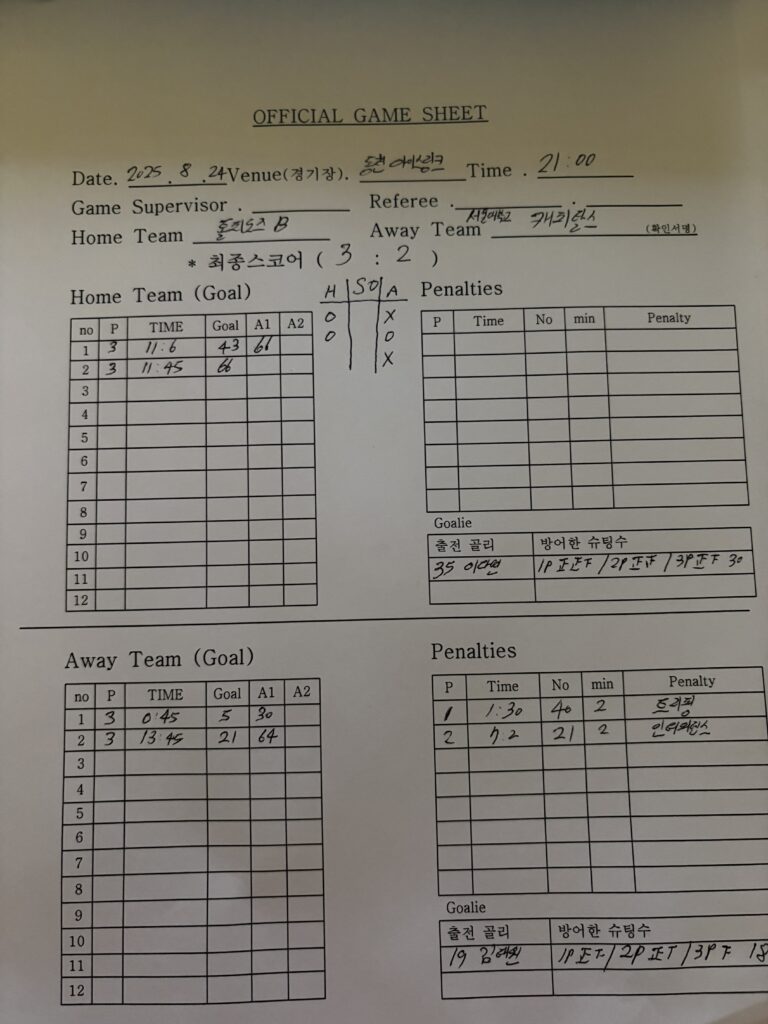 OFFICIAL GAME SHEET
Date. 2025 . 8 . 24 Venue(경기장). 동천 아이스링크 Time . 21:00
Game Supervisor . Referee . .
Home Team 돌피도즈 B Away Team 서울대학교 캐피탈스 (확인서명)
* 최종스코어 ( 3 : 2 )
Home Team (Goal)
H SO A
O X
O O
X
no P TIME Goal A1 A2
1 3 11:6 43 66
2 3 11:45 66
3
4
5
6
7
8
9
10
11
12
Penalties
P Time No min Penalty
Goalie
출전 골리 방어한 슈팅수
35 1P 正正F / 2P 正正 / 3P 正F 30
Away Team (Goal)
no P TIME Goal A1 A2
1 3 0:45 5 30
2 3 13:45 21 64
3
4
5
6
7
8
9
10
11
12
Penalties
P Time No min Penalty
1 1:30 40 2 트리핑
2 7:2 21 2 인터피런스
Goalie
출전 골리 방어한 슈팅수
19 1P 正T / 2P 正T / 3P F 18